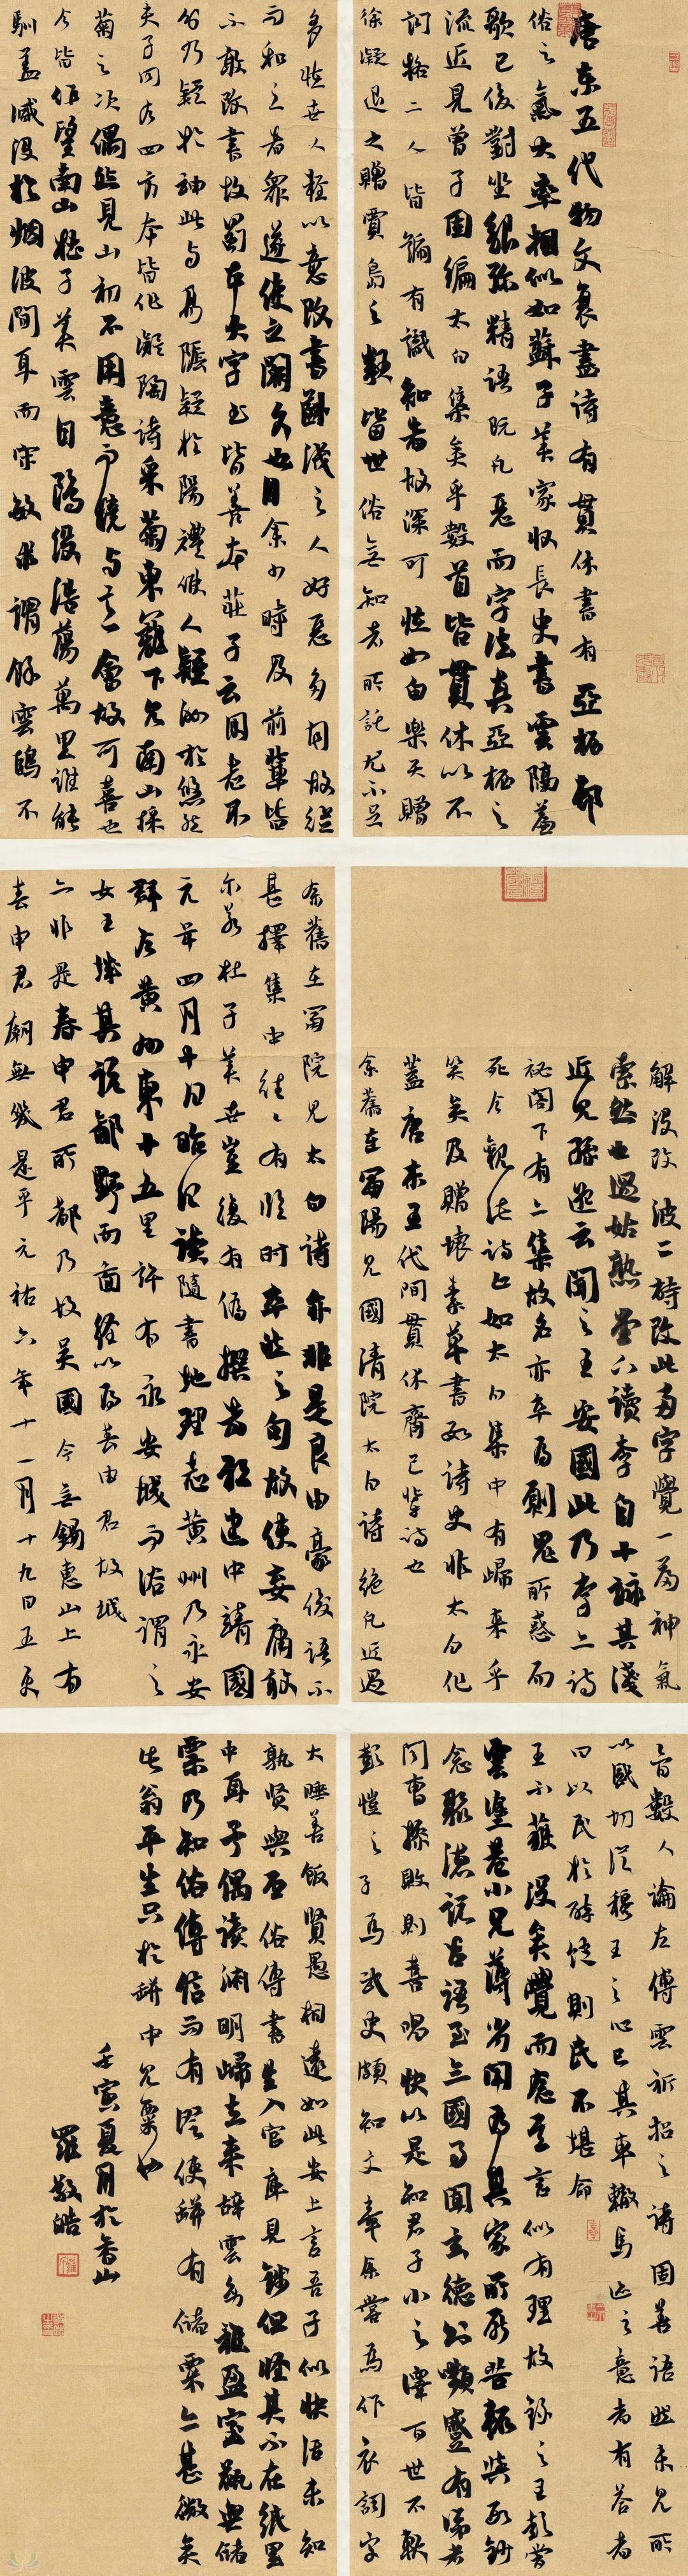 唐末五代物文衰盡詩有貫休書有亞栖邨
俗之氣大率相似如蘇子美家收長史書雲隔簾
歌已俊對坐貌弥精語既凡惡而字法真亞栖之
流近見曾子固編太白集矣乎數首皆貫休以不
詞格二人皆號有識知者故深可怪如白樂天贈
徐凝退之贈賈島之類皆世俗無知者所託尤不足
多恠世人輕以意改書鄙淺之人好惡多同故從
而和之者衆遂使之闕久也日余少時及前輩皆
不敢改書故蜀本大字書皆善本莊子云用志不
分乃疑於神此与易陰疑於陽禮使人疑汝於
夫子同今四方本皆作凝陶詩采菊東籬下見南山採
菊之次偶然見山初不用意而境与意會故可喜也
今皆作望南山杜子美雲白鷗没浩蕩萬里誰能
馴蓋滅没於烟波間耳而宋敏求謂余雲鷗不
解没改波二詩改此兩字覺一篇神氣
索然也過姑熟堂下讀李白十詠其淺
近見孫邈云聞之王安國此乃李赤詩
秘閣下有赤集故名赤卒為厠鬼所惑而
死今觀此詩止如太白集中有歸來乎
笑矣及贈懷素草書數詩史非太白作
蓋唐末五代間貫休齊己輩詩也
余舊在冨陽見國清院太白詩絕凡近過
余舊在冨院見太白詩亦非是良由豪俊語不
甚擇集中往往有臨時率然之句故使妄庸敢
尔若杜子美世豈復有偽撰者耶建中靖國
元年四月十日讀隨書地理志黃州乃永安
郡今黃州東十五里許有永安城而俗謂之
女王城其說鄙野而圖經以為春申君故城
亦非是春申君所都乃故吳國今無錫惠山上有
春申君廟無幾是乎元祐六年十一月十九日五更
與數人論左傳雲祈招之詩固善語然未見所
以感切從穆王之心已其車轍馬迹之意者有答者
曰以民於醉飽則民不堪命
王不獲没矣覺而念至言似有理故錄之王彭嘗
雲塗巷小兒薄劣聞為其家所厭苦輒與數錢
令聚聽說古語至三國事聞玄德敗顰蹙有涕者
聞曹操敗則喜唱快以是知君子小之澤百世不斬
彭愷之子為武吏頗知文章余嘗為作衣詞字
大睡善飯賢愚相遠如此安上言吾子似快活未知
孰賢與否俗傳書生入官庫見錢但怪其不在紙裹
中耳予偶讀淵明歸去来辞雲幼稚盈室瓶無儲
粟乃知俗傳信而有徵使瓶有儲粟亦甚微矣
此翁平生只於瓶中見粟也
壬寅夏月於香山
羅敬皓